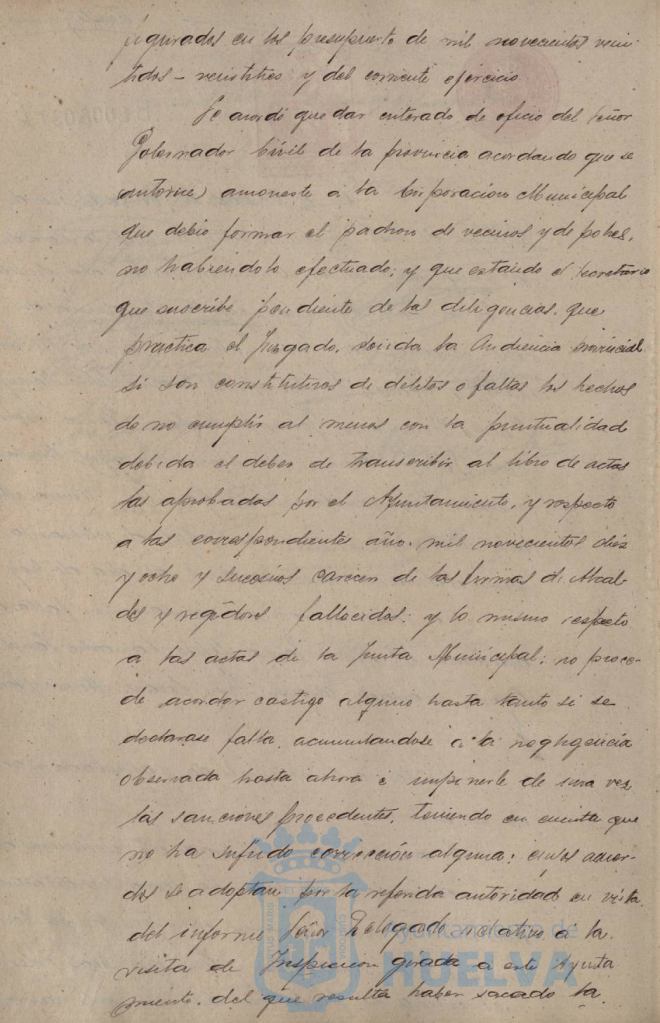 figurados en los presupuesto de mil novecientos vein
tidos - veintitres y del corriente ejercicio
Se acordó quedar enterado de oficio del Señor
Gobernador Civil de la provincia acordando que se
amoneste á la Corporacion Municipal
que debio formar el padron de vecinos y de pobres,
no habiendolo efectuado; y que estando el Secretario
que suscribe pendiente de las diligencias, que
practica el Juzgado, la Audiencia provincial
si son constitutivos de delitos o faltas los hechos
de no cumplir al menos con la puntualidad
debida el deber de transcribir al libro de actas
las aprobadas por el Ayuntamiento, y respecto
a las correspondientes año, mil novecientos diez
y ocho y sucesivos carecen de las firmas de Alcal
des y regidores fallecidos; y lo mismo respecto
a las actas de la Junta Municipal; no proce-
de acordar castigo alguno hasta tanto si se
declarase falta, acumulandose á la negligencia
observada hasta ahora é imponerle de una vez
las sanciones procedentes, teniendo en cuenta que
no ha sufrido corrección alguna; cuyos acuer-
dos se adoptan por la referida autoridad en vista
del informe Señor Delegado relativo á la
visita de Inspeccion girada a este Ayunta
miento, del que resulta haber sacado la
Ayuntamiento de
HUELVA